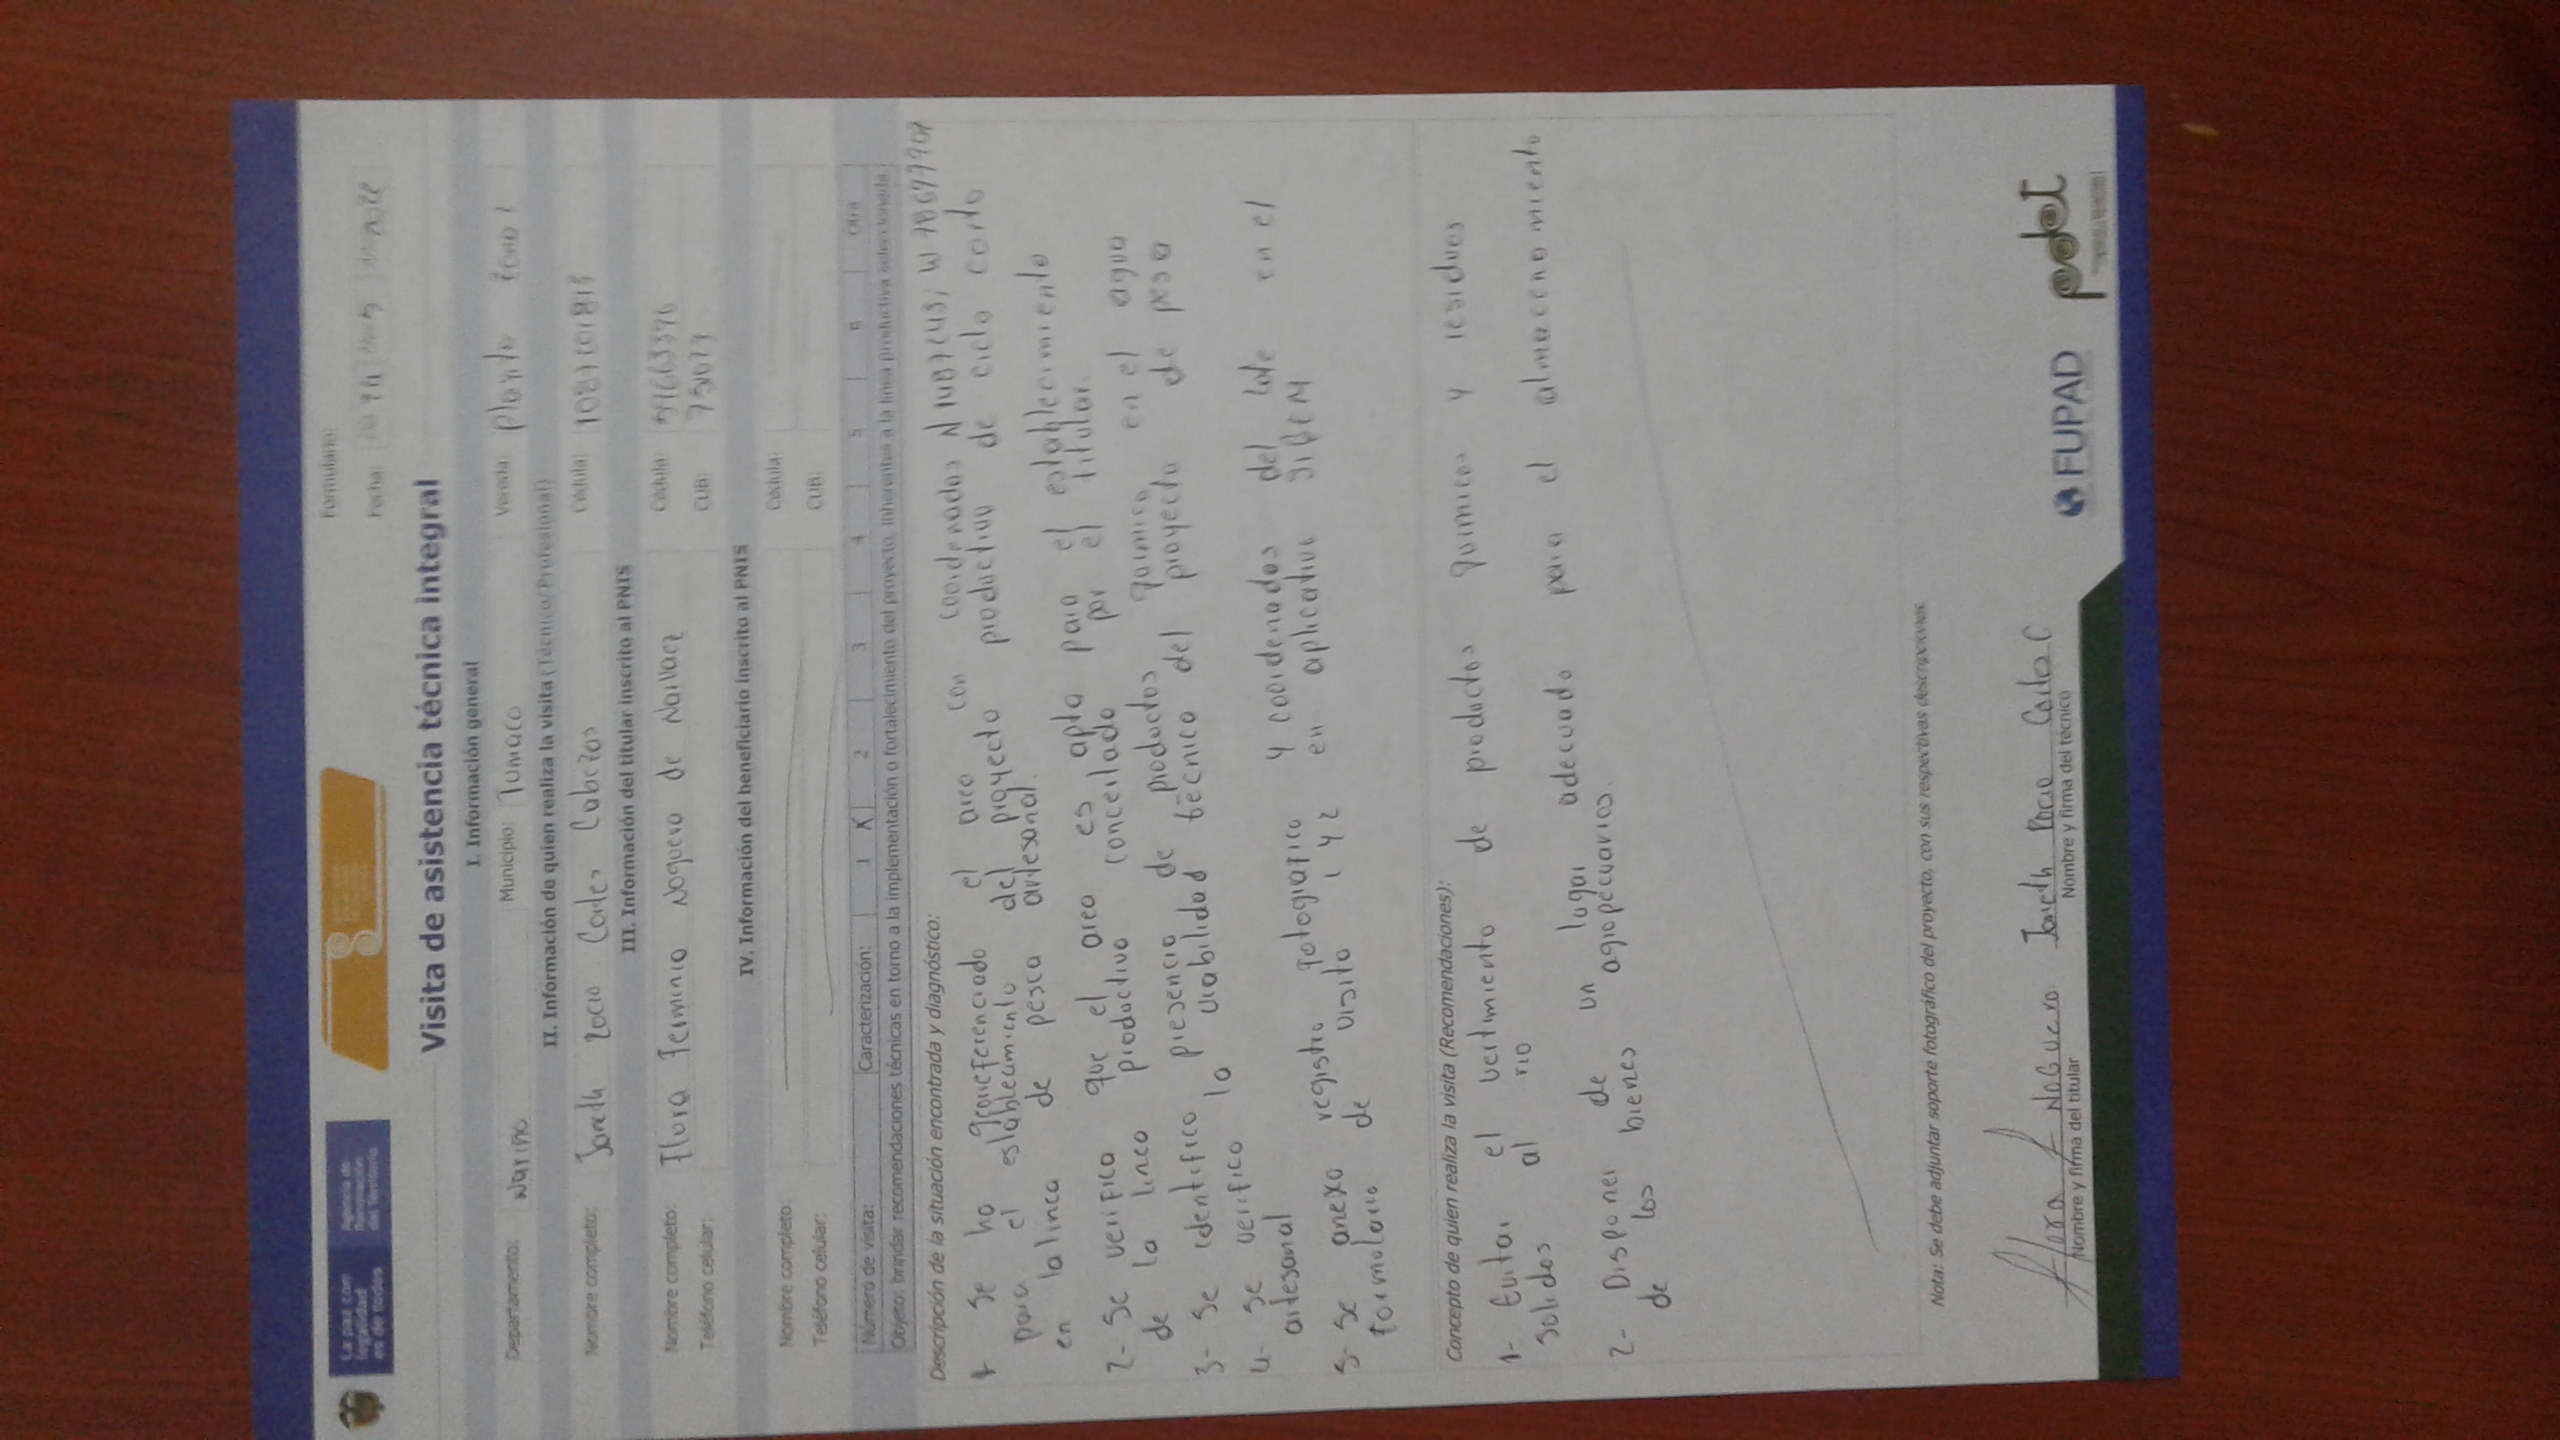 La paz con
legalidad
es de todos
Agencia de
Renovación
del Territorio
Formulario:
Fecha:
Visita de asistencia técnica integral
I. Información general
Departamento: Nariño Municipio: Tumaco Vereda:
II. Información de quien realiza la visita (Técnico/Profesional)
Nombre completo: Janeth Rocio Cortes Cabezas Cédula:
III. Información del titular inscrito al PNIS
Nombre completo: Flora Ferminia Noguera de Narvaez Cédula:
Teléfono celular: CUB:
IV. Información del beneficiario inscrito al PNIS
Nombre completo: Cédula:
Teléfono celular: CUB:
Número de visita: Caracterización: 1 X 2 3 4 5 6 Otra
Objeto: brindar recomendaciones técnicas en torno a la implementación o fortalecimiento del proyecto, inherentes a la línea productiva seleccionada.
Descripción de la situación encontrada y diagnóstico:
1- Se ha georeferenciado el area con coordenadas
para el establecimiento del proyecto productivo de ciclo corto
en la linea de pesca artesanal.
2- Se verifica que el area es apta para el establecimiento
de la linea productiva concertada por el titular.
3- Se identifico presencia de productos quimico en el agua
4- Se verifico la viabilidad técnica del proyecto de pesca
artesanal
5- Se anexa registro fotografico y coordenadas del lote en el
formulario de visita 1 y 2 en aplicativo SIGEM
Concepto de quien realiza la visita (Recomendaciones):
1- Evitar el vertimiento de productos quimicos y residuos
solidos al rio
2- Disponer de un lugar adecuado para el almacenamiento
de los bienes agropecuarios.
Nota: Se debe adjuntar soporte fotográfico del proyecto, con sus respectivas descripciones.
Flora F Noguera
Nombre y firma del titular
Janeth Rocio Cortes C
Nombre y firma del técnico
FUPAD
pdet